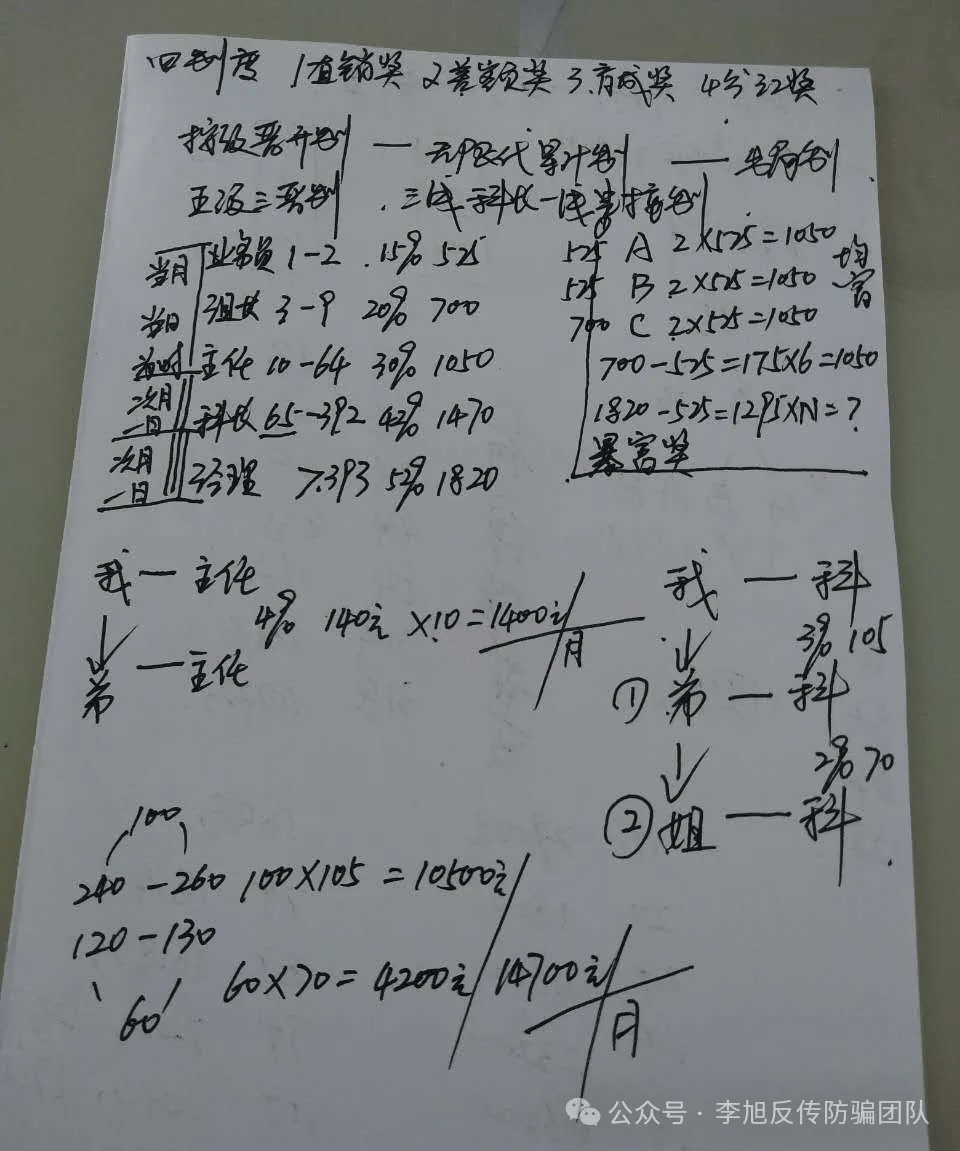 四制度 1直销奖 2差额奖 3.育成奖 4分红奖
按级晋升制 — 无限代累计制 — 出局制
五级三晋制 . 三代科长一代
当月 业务员 1-2 .15% 525
当日 组长 3-9 20% 700
当时 主任 10-64 30% 1050
次月一日 科长 65-392 42% 1470
次月一日 经理 >.393 52% 1820
525 A 2×525=1050
525 B 2×525=1050
700 C 2×525=1050
均富
700-525=175×6=1050
1820-525=1295×N=?
暴富奖
我 — 主任
4% 140元 ×10=1400元/月
弟 — 主任
我 — 科
3% 105
① 弟 — 科
2% 70
② 姐 — 科
100
240-260 100×105=10500元
120-130
60×70=4200元 14700元/月
60
公众号·李旭反传防骗团队